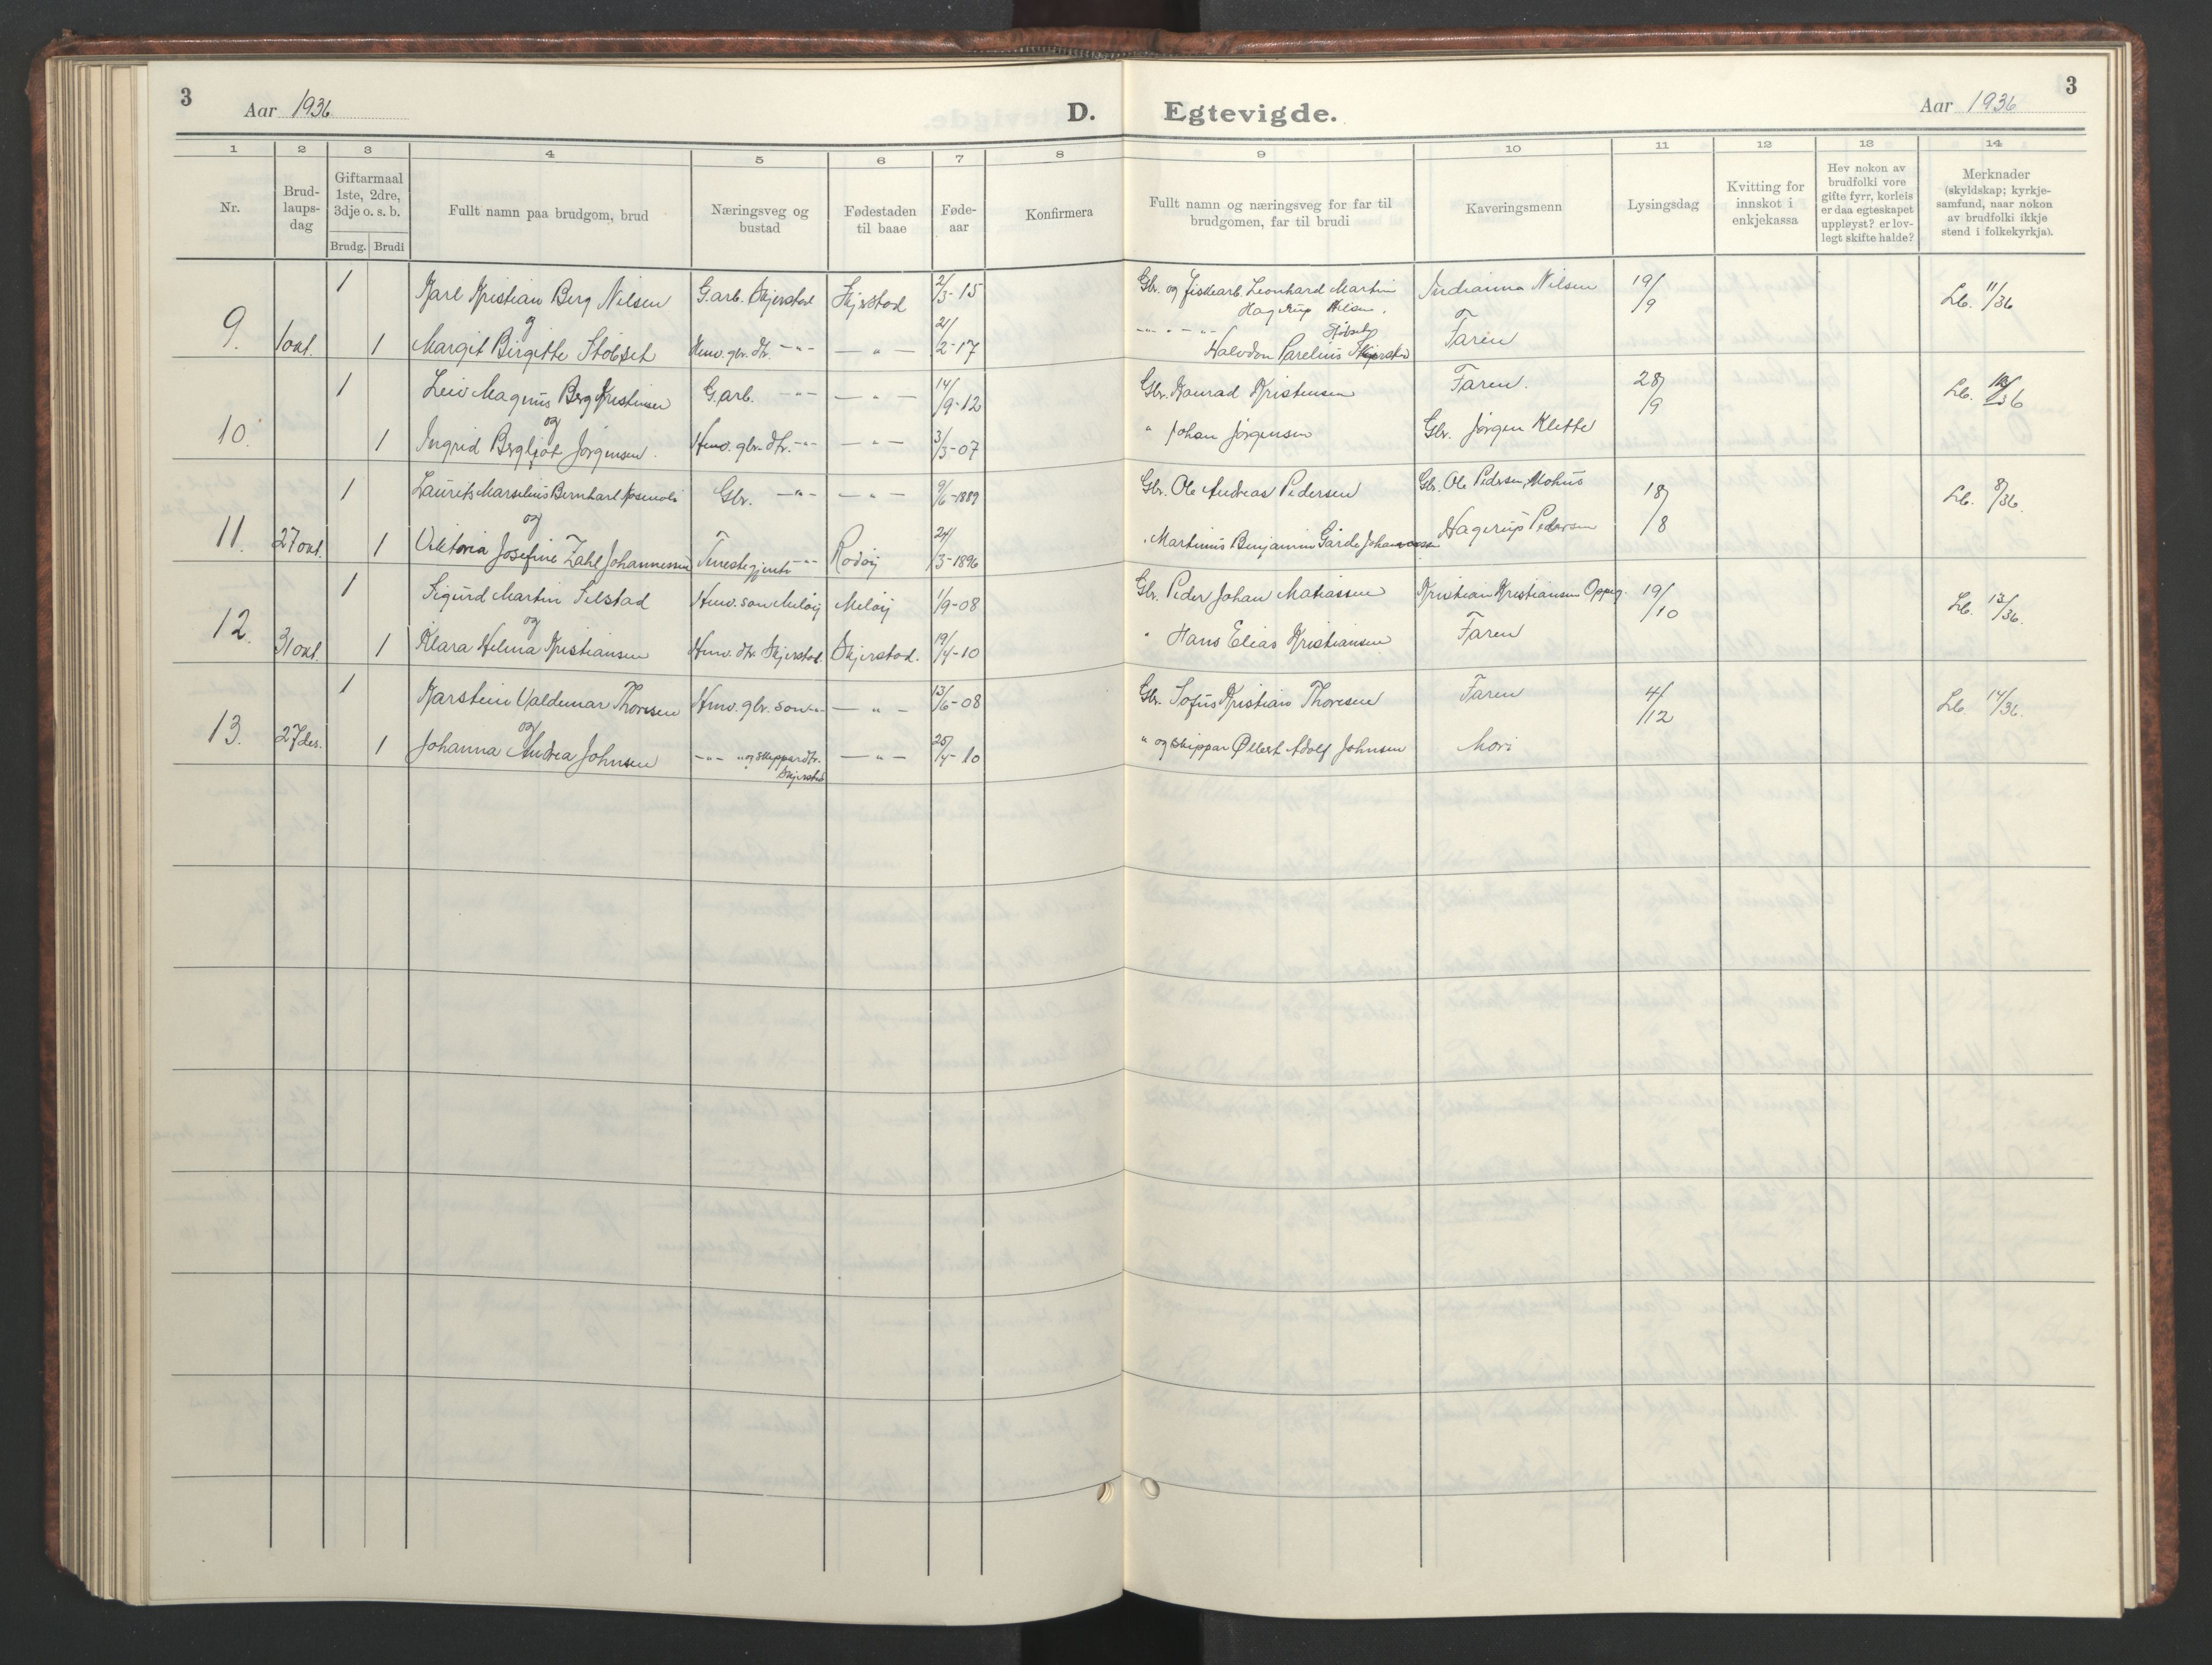 3
Aar 1936
D.
Egtevigde.
Aar 1936
3
1 2 3 4 5 6 7 8 9 10 11 12 13 14
Nr.
Brud-
laups-
dag
Giftarmaal
1ste, 2dre,
3dje o. s. b.
Brudg. Brudi
Fullt namn paa brudgom, brud
Næringsveg og
bustad
Fødestaden
til baae
Føde-
aar
Konfirmera
Fullt namn og næringsveg for far til
brudgomen, far til brudi
Kaveringsmenn
Lysingsdag
Kvitting for
innskot i
enkjekassa
Hev nokon av
brudfolki vore
gifte fyrr, korleis
er daa egteskapet
uppløyst? er lov-
legt skifte halde?
Merknader
(skyldskap; kyrkje-
samfund, naar nokon
av brudfolki ikkje
stend i folkekyrkja).
1 Karl Kristian Berg Nilsen G.arb. Skjerstad Skjerstad 2/3-15 Gbr. og fiskearb. Leonhard Martin Indianna Nilsen 19/9 Lb. 11/36
Hagerup Nilsen.
og
9. 1 okt. 1 Margit Birgitte Støbset Heimv. gbr. dtr. -"- -"- 21/2-17 -"- - -"- Halvdon Parelius Skjerstad Faren
Støbset
1 Leiv Magnus Berg Kristensen G.arb. -"- -"- 14/9-12 Gbr. Konrad Kristensen Faren. 28/9 Lb. /36
og
10. 1 Ingrid Bergljot Jørgensen. Heimv. gbr. dtr. -"- -"- 3/3-07 " Johan Jørgensen Gbr. Jørgen Klette
1 Laurits Marselius Bernhart Gbr. -"- -"- 9/6-1889 Gbr. Ole Andreas Pedersen Gbr. Ole Pedersen, Mohus 18/8 Lb. 8/36.
og
11. 27 okt. 1 Viktoria Josefine Zahl Johannessen Tenestegjente -"- Rødøy 24/3-1896 " Martinus Benjamin Garde Johannessen Hagerup Pedersen
1 Sigurd Martin Selstad Heimv. son Meløy Meløy 1/9-08 Gbr. Peder Johan Matiassen Kristian Kristiansen Oppeg. 19/10 Lb. 13/36.
og
12. 31 okt. 1 Klara Helma Kristiansen Heimv. dtr. Skjerstad. Skjerstad. 19/4-10 " Hans Elias Kristiansen Faren
1 Karstein Valdemar Thoresen Heimv. gbr. son -"- -"- 13/6-08 Gbr. Sofus Kristian Thoresen Faren 4/12 Lb. 14/36.
og
13. 27 des. 1 Johanna Andrea Johnsen -"- " og skippardtr. -"- 25/4-10 " og skippar Ølbert Adolf Johnsen Mori
Skjerstad